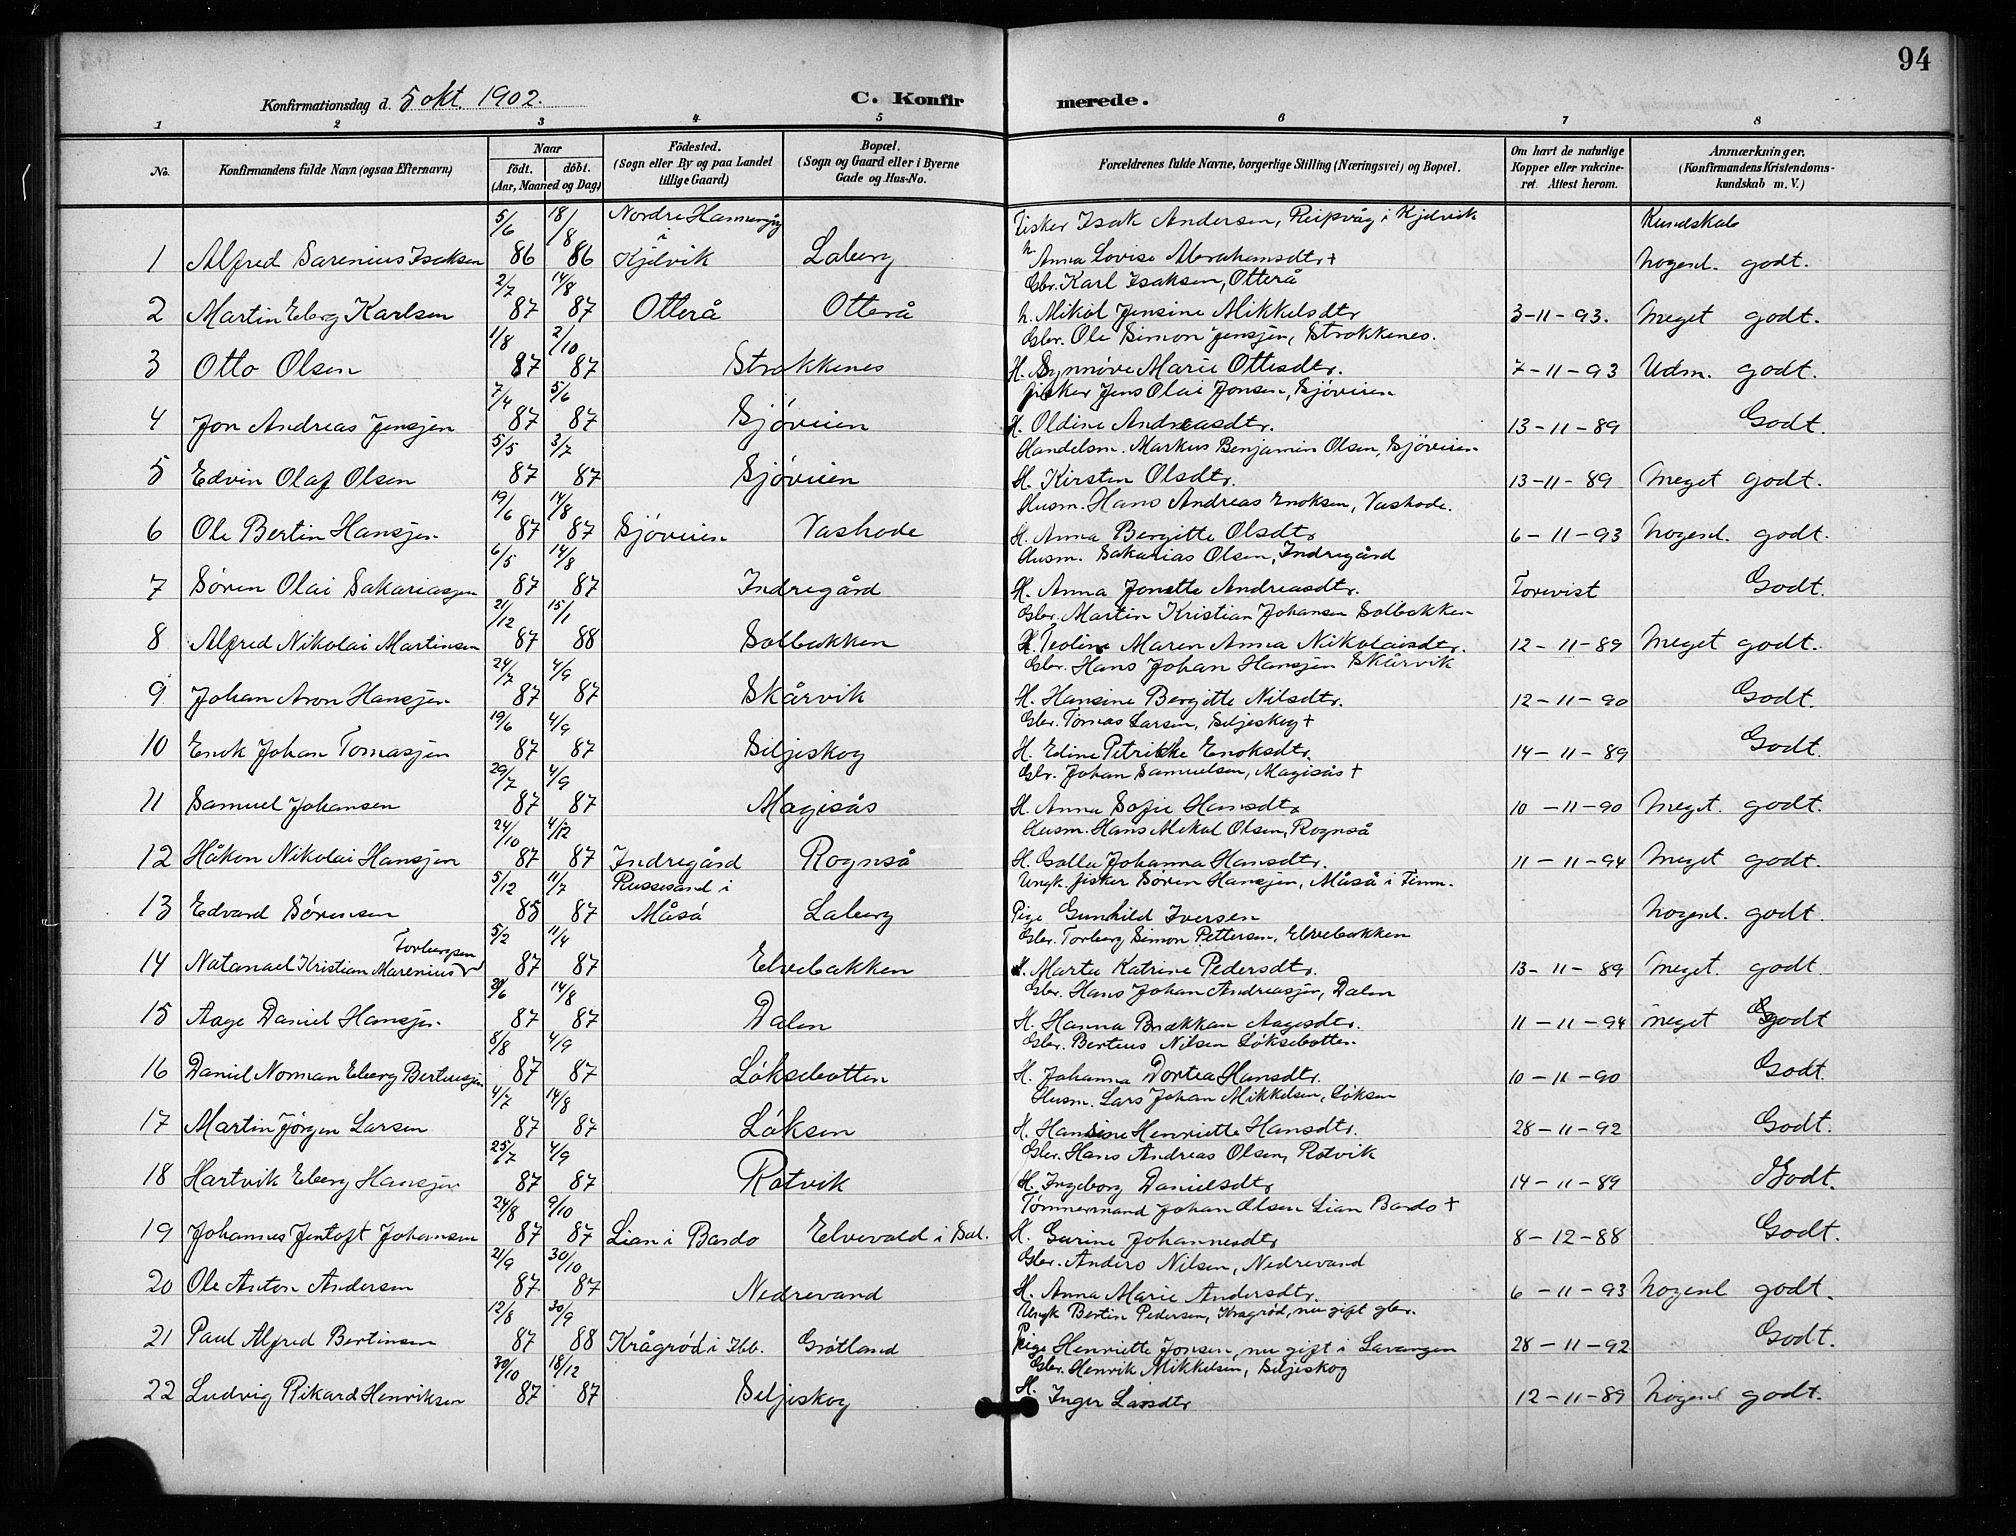 94
Konfirmationsdag d. 5 okt. 1902.
C. Konfirmerede.
1 2 3 4 5 6 7 8
No.
Konfirmandens fulde Navn (ogsaa Efternavn)
Naar
födt. döbt.
(Aar, Maaned og Dag)
Födested.
(Sogn eller By og paa Landet
tillige Gaard)
Bopæl.
(Sogn og Gaard eller i Byerne
Gade og Hus-No.
Forældrenes fulde Navne, borgerlige Stilling (Næringsvei) og Bopæl.
Om havt de naturlige
Kopper eller vakcine-
ret. Attest herom.
Anmærkninger.
(Konfirmandens Kristendoms-
kundskab m. V.)
5/6 18/8 Nordre Hammervåg Fisker Isak Andersen, Reipvåg i Kjelvik Kundskab
1 Alfred Sarenius Isaksen 86 86 i Kjelvik Laberg h. Anna Lovise Abrahamsdtr + Nogenl. godt.
2/7 14/8 Gbr. Karl Isaksen, Otterå
2 Martin Eberg Karlsen 87 87 Otterå Otterå h. Mikol Jensine Mikkelsdtr 3-11-93. Meget godt.
1/8 2/10 Gbr. Ole Simon Jensjen, Strokkenes.
3 Otto Olsen 87 87 Strokkenes H. Synnøve Marie Ottesdtr. 7-11-93 Udm. godt.
7/4 5/6 Fisker Jens Olai Jonsen, Sjöveien
4 Jon Andreas Jensjen 87 87 Sjöveien H. Oldine Andreasdtr. 13-11-89 Godt.
5/5 3/7 Handelsm. Markus Benjamin Olsen, Sjöveien
5 Edvin Olaf Olsen 87 87 Sjöveien H. Kirsten Olsdtr. 13-11-89 Meget godt.
19/6 14/8 Husm. Hans Andreas Enoksen, Vashode.
6 Ole Bertin Hansjen 87 87 Sjöveien Vashode H. Anna Bergitte Olsdtr 6-11-93 Nogenl. godt.
6/5 14/8 Husm. Sakarias Olsen, Indregård
7 Sören Olai Sakariasjen 87 87 Indregård H. Anna Jonette Andreasdtr. Forevist Godt.
21/12 15/1 Gbr. Martin Kristian Johansen Solbakken
8 Alfred Nikolai Martinsen 87 88 Solbakken H. Teoline Maren Anna Nikolaisdtr. 12-11-89 Meget godt.
24/7 4/9 Gbr. Hans Johan Hansjen Skårvik
9 Johan Aron Hansjen 87 87 Skårvik H. Hansine Bergitte Nilsdtr. 12-11-90 Godt.
19/6 4/9 Gbr. Tomas Larsen, Siljeskog +
10 Enok Johan Tomasjen 87 87 Siljeskog H. Edine Petrikke Enoksdtr. 14-11-89 Godt.
29/7 4/9 Gbr. Johan Samuelsen, Magisås +
11 Samuel Johansen 87 87 Magisås H. Anna Sofie Hansdtr 10-11-90 Meget. godt.
24/10 4/12 Husm. Hans Mekal Olsen, Rognså
12 Håkon Nikolai Hansjen 87 87 Indregård Rognså H. Golla Johanna Hansdtr. 11-11-94 Meget godt.
5/12 11/7 Russesand i Ungk. fisker Sören Hansjen, Måså i Finm.
13 Edvard Sörensen 85 87 Måså Laberg Pige Gunhild Iversen Nogenl. godt.
5/2 11/4 Gbr. Torberg Simon Pettersen, Elvebakken
14 Natanael Kristian Marenius Torbergsen 87 87 Elvebakken H. Marta Katrine Pedersdtr. 13-11-89 Meget. godt.
14/8 Gbr. Hans Johan Andreasjen, Dalen
15 Aage Daniel Hansjen. 87 87 Dalen H. Hanna Brækkan Aagesdtr. 11-11-94 Meget godt
8/8 4/9 Gbr. Berteus Nilsen Löksebotten
16 Daniel Norman Eberg Berteusjen 87 87 Löksebotten H. Johanna Dortea Hansdtr. 10-11-90 Godt.
4/7 14/8 Husm. Lars Johan Mikkelsen, Löksen
17 Martin Jörgen Larsen 87 87 Löksen H. Hansine Henriette Hansdtr. 28-11-92 Godt.
25/7 4/9 Gbr. Hans Andreas Olsen, Rotvik
18 Hartvik Eberg Hansjen 87 87 Rotvik H. Ingeborg Danielsdtr 14-11-89 Godt.
24/8 9/10 Tömmermand Johan Olsen Lian Bardo +
19 Johannes Jentoft Johansen 87 87 Lian i Bardo Elvevold i Sal. H. Gurine Johannesdtr 8-12-88 Godt.
21/9 30/10 Gbr. Anders Nilsen, Nedrevand
20 Ole Anton Andersen 87 87 Nedrevand H. Anna Marie Andersdtr. 6-11-93 Nogenl godt.
12/8 30/9 Ungk Bertin Pedersen, Kragröd, nu gift gbr.
21 Paul Alfred Bertinsen 87 88 Krågröd i Ibb. Grötland Pige Henriette Jonsen, nu gift i Lavangen 28-11-92 Godt.
30/10 18/12 Gbr. Henrik Mikkelsen, Siljeskog
22 Ludvig Rikard Henriksen 87 87 Siljeskog H. Inger Larsdtr 12-11-89 Nogenl godt.